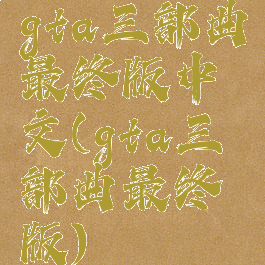 gta三部曲
最终版中
文(gta三
部曲最终
版)